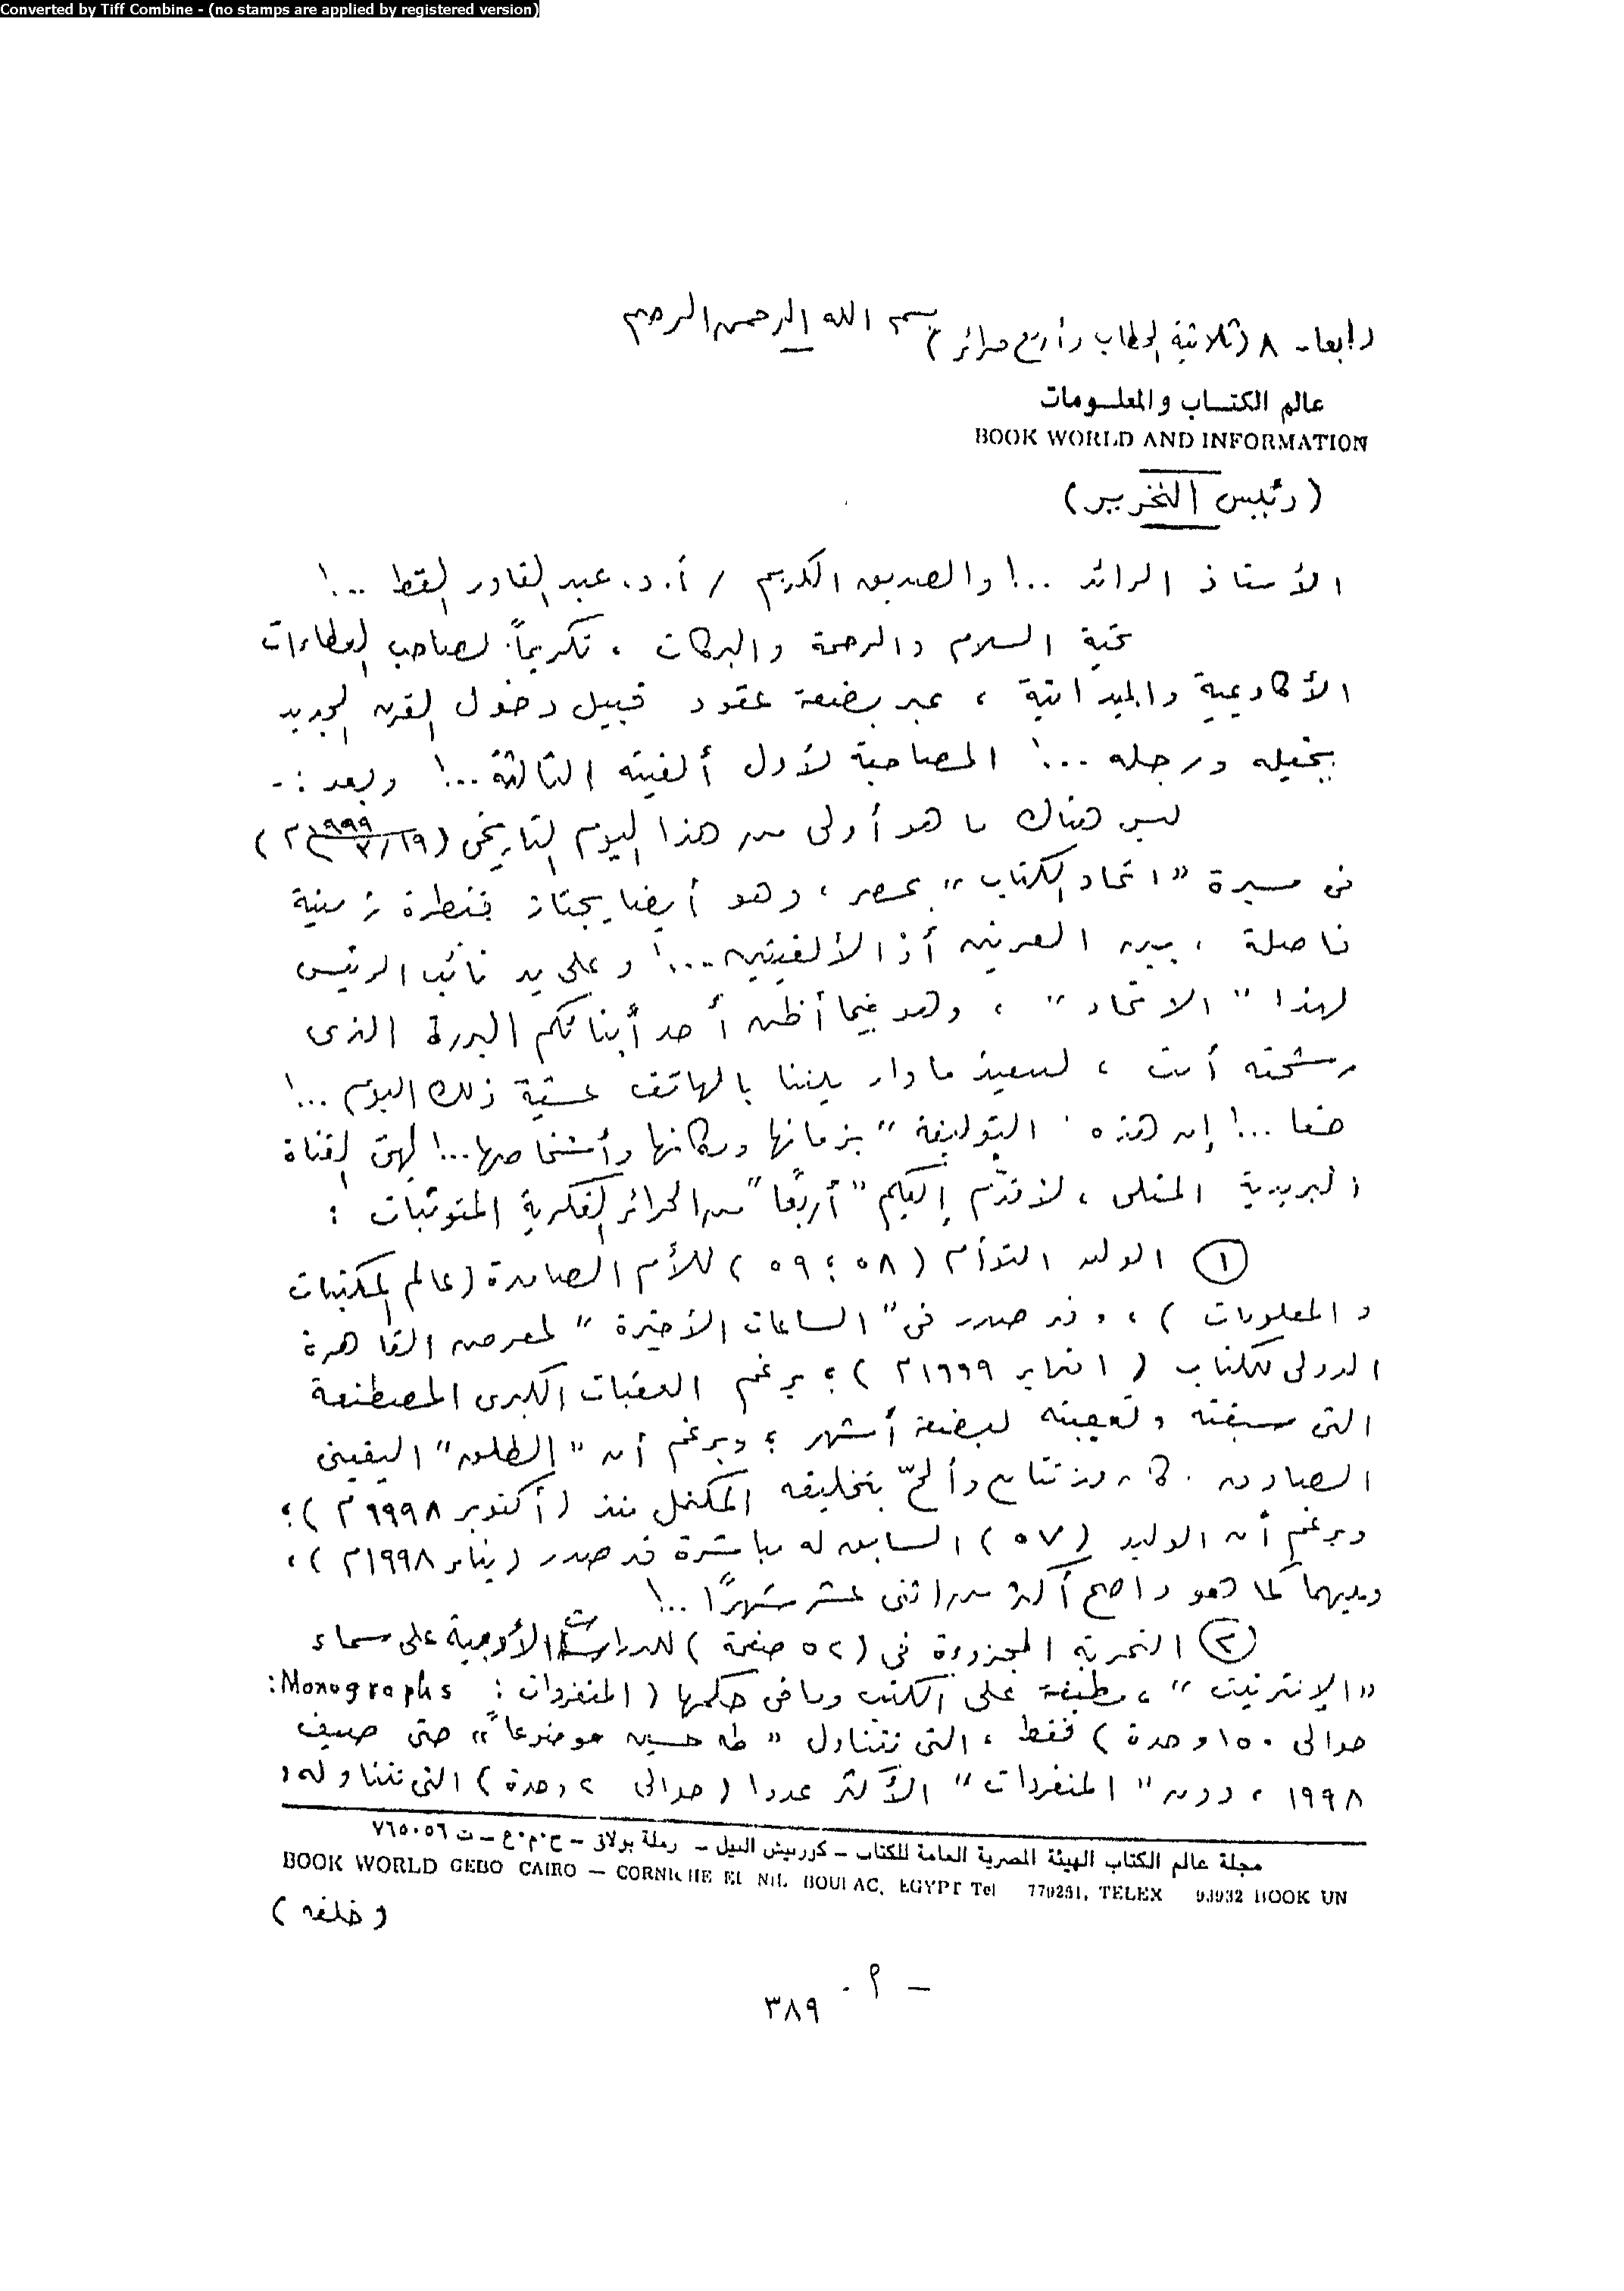 Converted by Tiff Combine - (no stamps are applied by registered version)
بسم الله الرحمن الرحيم
رابعا - ٨ (ثلاثية الخطاب وأربع حرائر)
عالم الكتاب والمعلومات
BOOK WORLD AND INFORMATION
(رئيس التحرير)
الأستاذ الرائد ..! والصديق الكريم / أ. د. عبد القادر القط ..!
تحية السلام والرحمة والبركات ، تكريماً لصاحب العطاءات
الأكاديمية والميدانية ، عبر بضعة عقود قبيل دخول القرن الجديد
بخيله ورجله ...! المصاحبة لأول ألفيته الثالثة ...! وبعد :-
ليس هناك ما هو أولى من هذا اليوم التاريخى (١٩/٣/١٩٩٩م)
فى مسيرة "اتحاد الكتاب" بمصر ، وهو أيضا يجتاز قنطرة زمنية
فاصلة ، بين القرنين أو الألفيتين ...! وعلى يد نائب الرئيس
لهذا "الاتحاد" ، وهو فيما أظن أحد أبنائكم البررة الذى
رشحته أنت ، لسعيد ما دار بيننا بالهاتف عشية ذلك اليوم ...!
حقا ...! إن هذه "التوليفة" بزمانها ومكانها وأشخاصها ...! لهى القناة
البريدية المثلى ، لأقدّم إليكم "أربعًا" من الحرائر الفكرية المتوثبات :
(١) الوليد التوأم (٥٨ ؛ ٥٩) للأم الصامدة (عالم المكتبات
والمعلومات) ، وقد صدر فى "الساعات الأخيرة" لمعرض القاهرة
الدولى للكتاب (١ فبراير ١٩٩٩م) ؛ برغم العقبات الكبرى المصطنعة
التى سبقته وتعقبته لبضعة أشهر ؛ وبرغم أن "الطلق" اليقينى
الصادق كان قد تتابع وألحّ بتخليقه المكتمل منذ (أكتوبر ١٩٩٨م) ؛
وبرغم أن الوليد (٥٧) السابق له مباشرة قد صدر (يناير ١٩٩٨م) ،
وبينهما كما هو واضح أكثر من اثنى عشر شهرًا ..!
(٢) التجربة المجزوءة فى (٥٢ صفحة) للدراسات الأدبية على سماء
"الإنترنيت" ، مطبقة على الكتب وما فى حكمها (المنفردات : Monographs :
حوالى ١٥٠ وحدة) فقط ، التى تتناول "طه حسين موضوعاً" حتى صيف
١٩٩٨ ، دون "المنفردات" الأكثر عددا (حوالى ٢ وحدة) التى تتناوله ،
مجلة عالم الكتاب الهيئة المصرية العامة للكتاب - كورنيش النيل - رملة بولاق - ج.م.ع - ت ٧٦٥٠٥٦
BOOK WORLD GEBO CAIRO — CORNICHE EL NIL BOULAC, EGYPT Tel 779251, TELEX 93932 BOOK UN
(خلفه)
٣٨٩